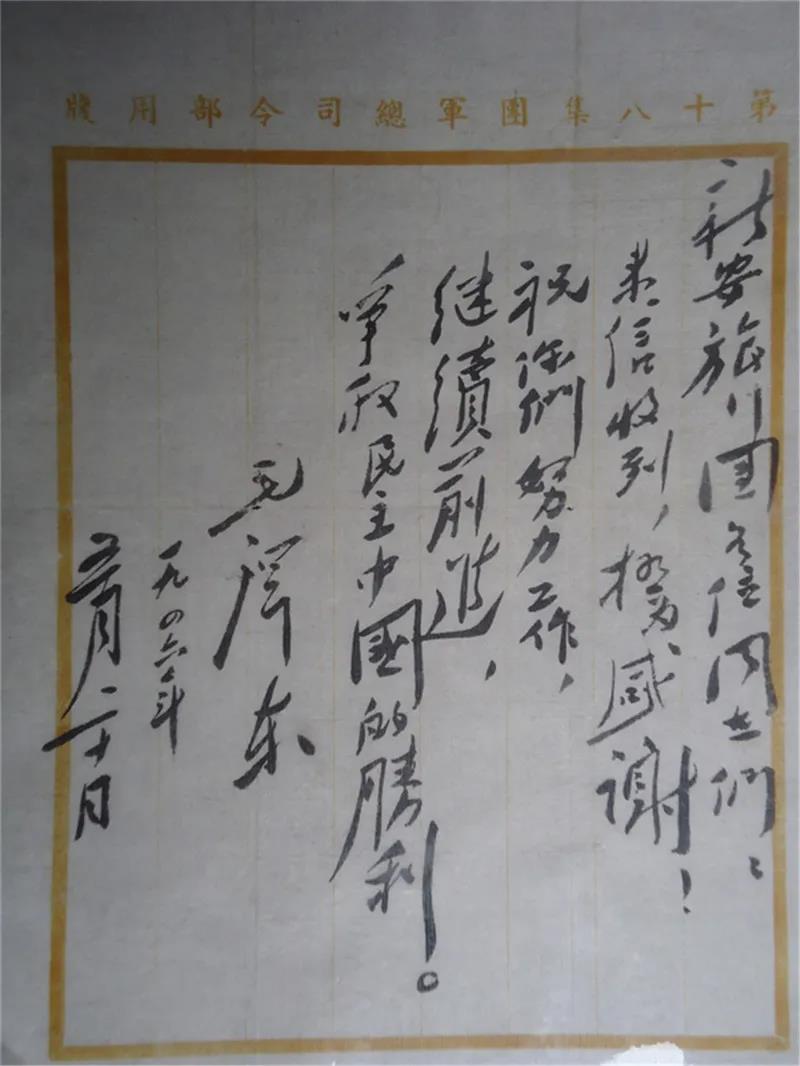 第十八集團軍總司令部用牋
新安旅行團各位同志們：
来信收到，极为感謝！
祝你們努力工作，
继續前進，
爭取民主中國的勝利。
毛澤东
一九四六年
五月二十日